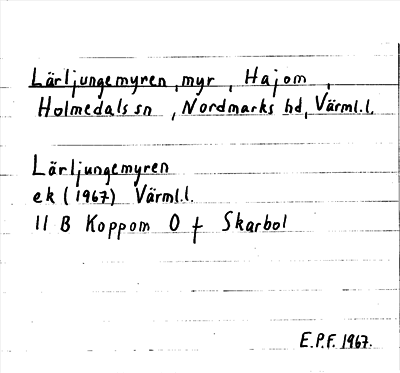 Lärljungemyren, myr, Hajom,
Holmedals sn, Nordmarks hd, Värml.l.
Lärljungemyren
ek (1967) Värml.l.
11 B Koppom O f Skarbol
E.P.F. 1967.